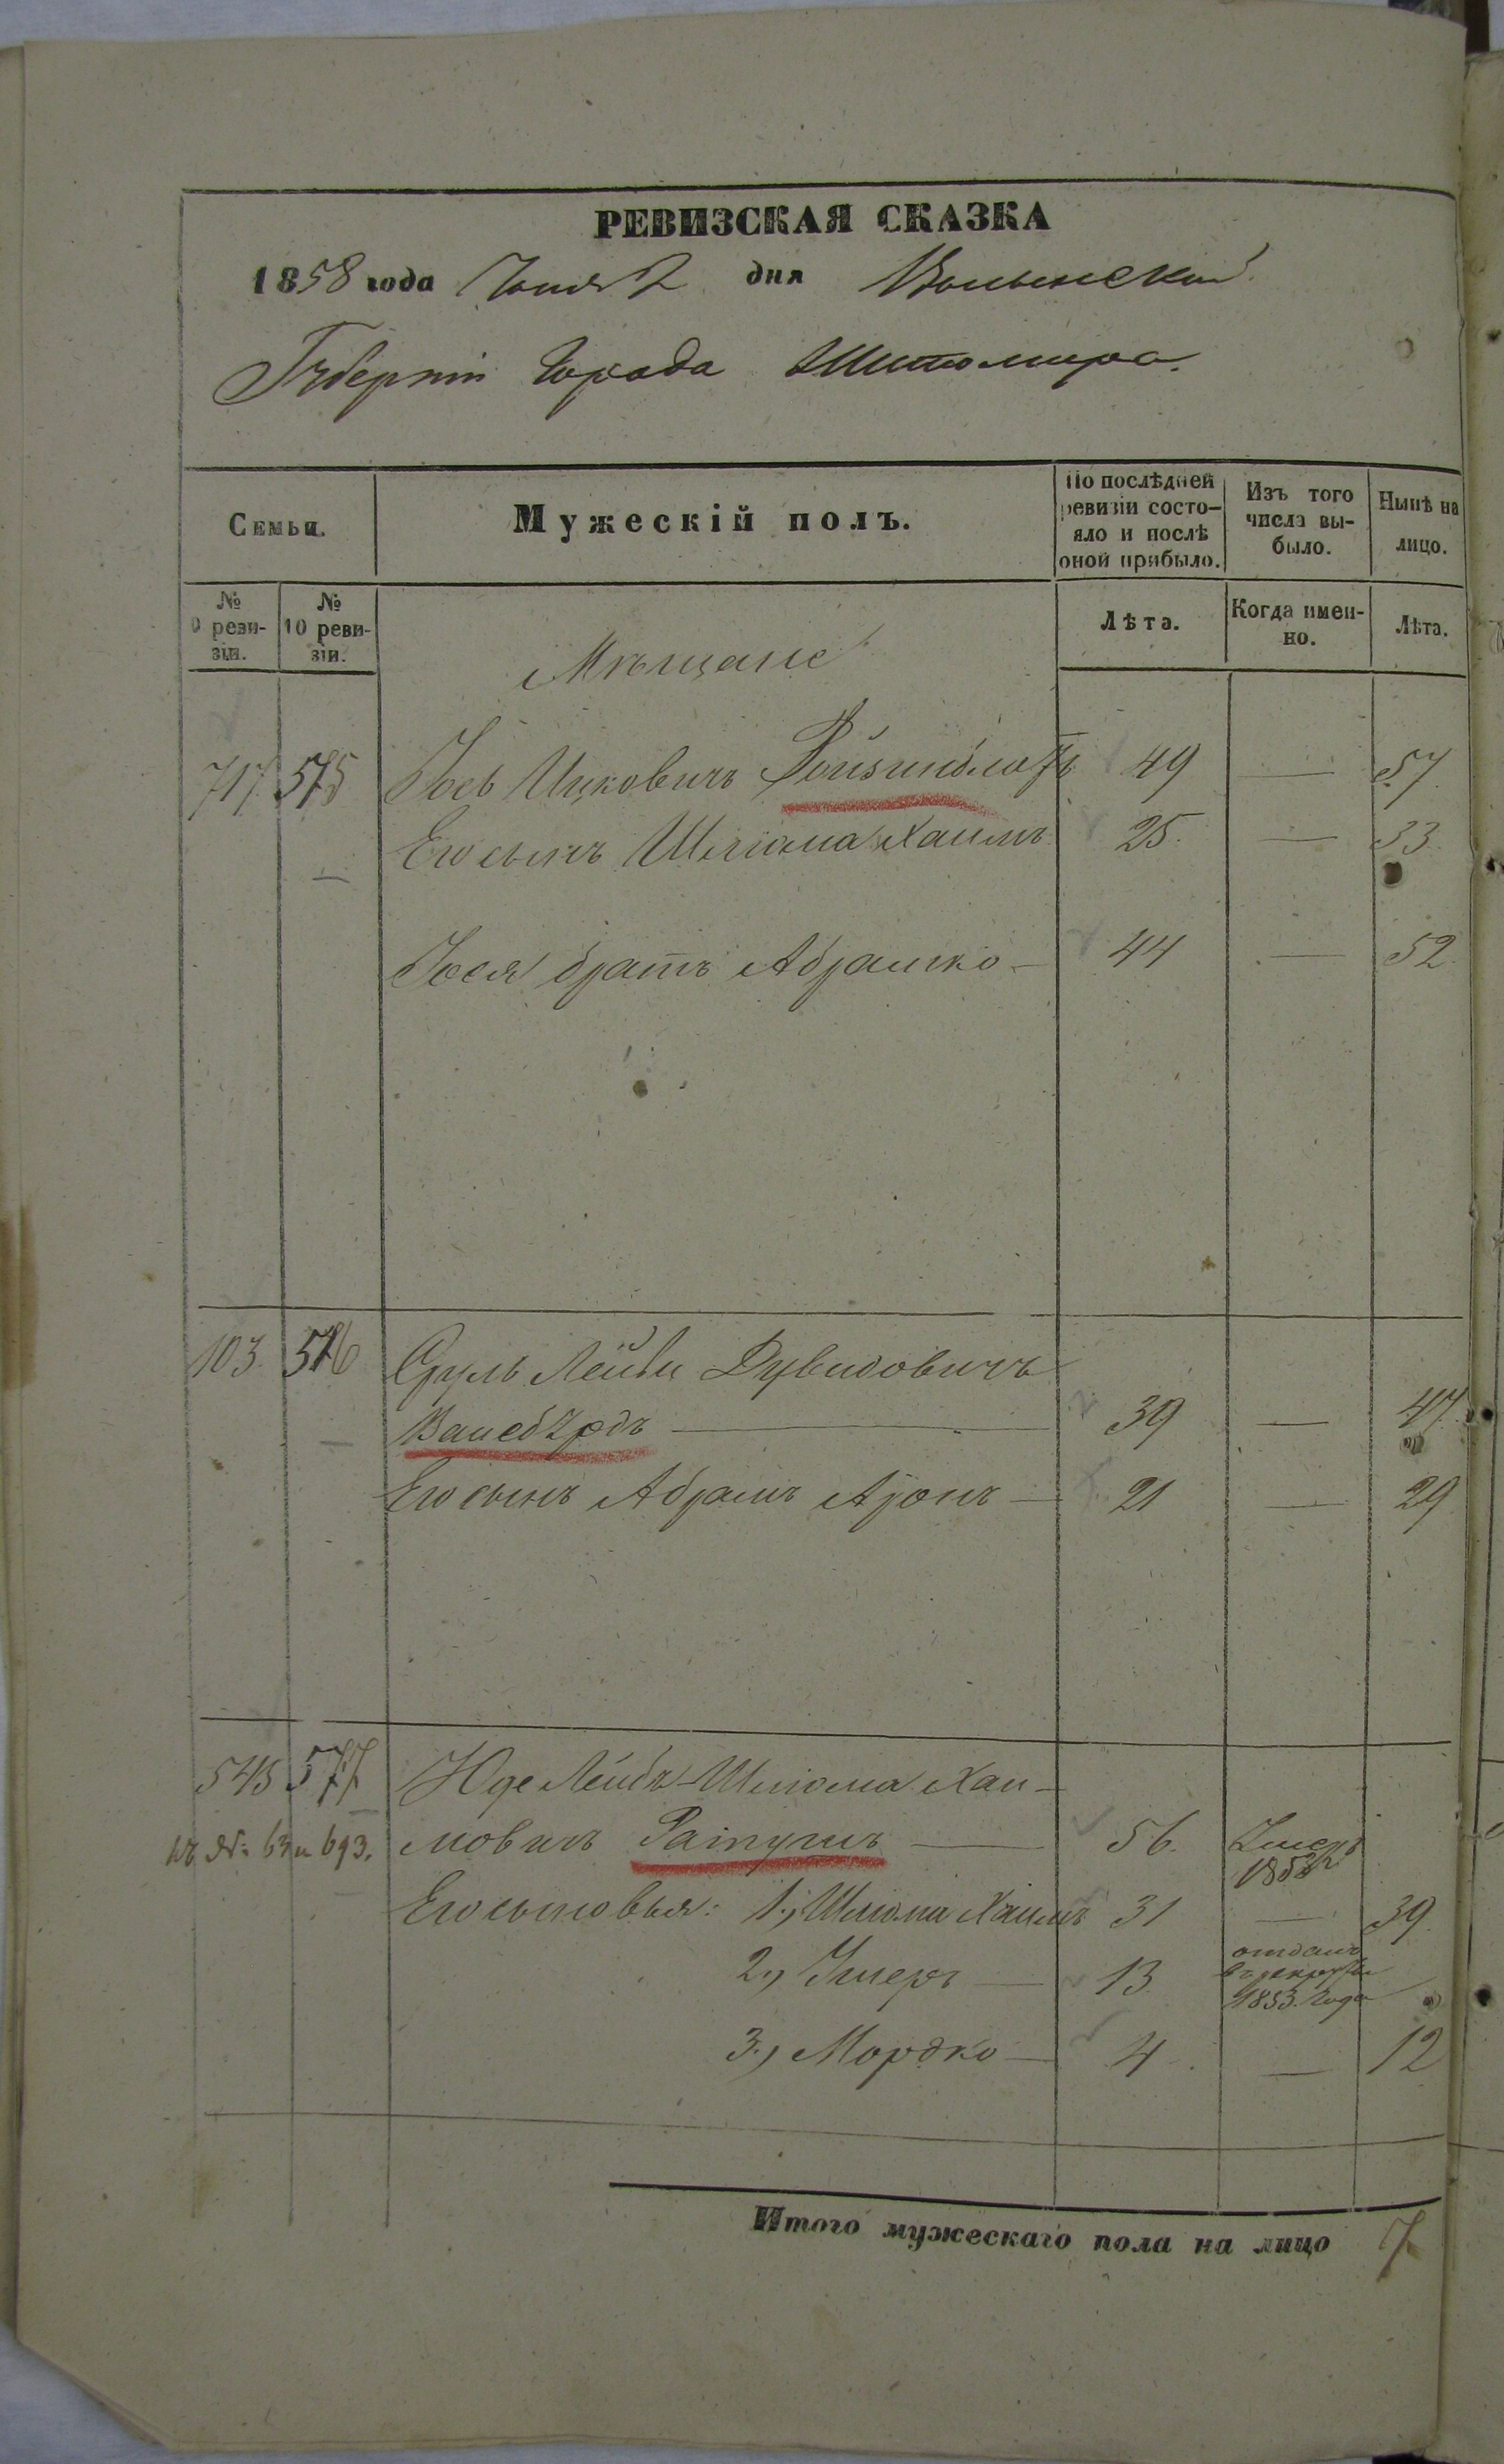 РЕВИЗСКАЯ СКАЗКА
1858 года Юня 2 дня Волынской
Губерніи Города Житомира.
Семьи.
Мужескій полъ.
По послѣдней ревизіи состо-
яло и послѣ
оной прибыло.
Изъ того
числа вы-
было.
Нынѣ на
лицо.
№
9 реви-
зіи.
№
10 реви-
зіи.
Лѣта.
Когда имен-
но.
Лѣта.
Мѣщане
717 575 Іось Ицковичъ Ройзинблатъ 49 — 57.
Его сынъ Шліома Хаимъ 25. — 33.
Іося братъ Абрамко — 44 — 52.
103. 576 Сруль Лейви Дувидовичъ
— 39 — 47.
Его сынъ Абрамъ Аронъ — 21 — 29
545 577 Юде Лейбъ-Шліома Хаи-
63 и 693. мовичъ Ратушъ — 56. Умеръ
185
Его сыновья: 1., Шліома Хаимъ 31 — 39.
2., Умеръ — 13. отданъ
въ рекруты
1853. года
3., Мордко — 4. — 12
Итого мужескаго пола на лицо 7